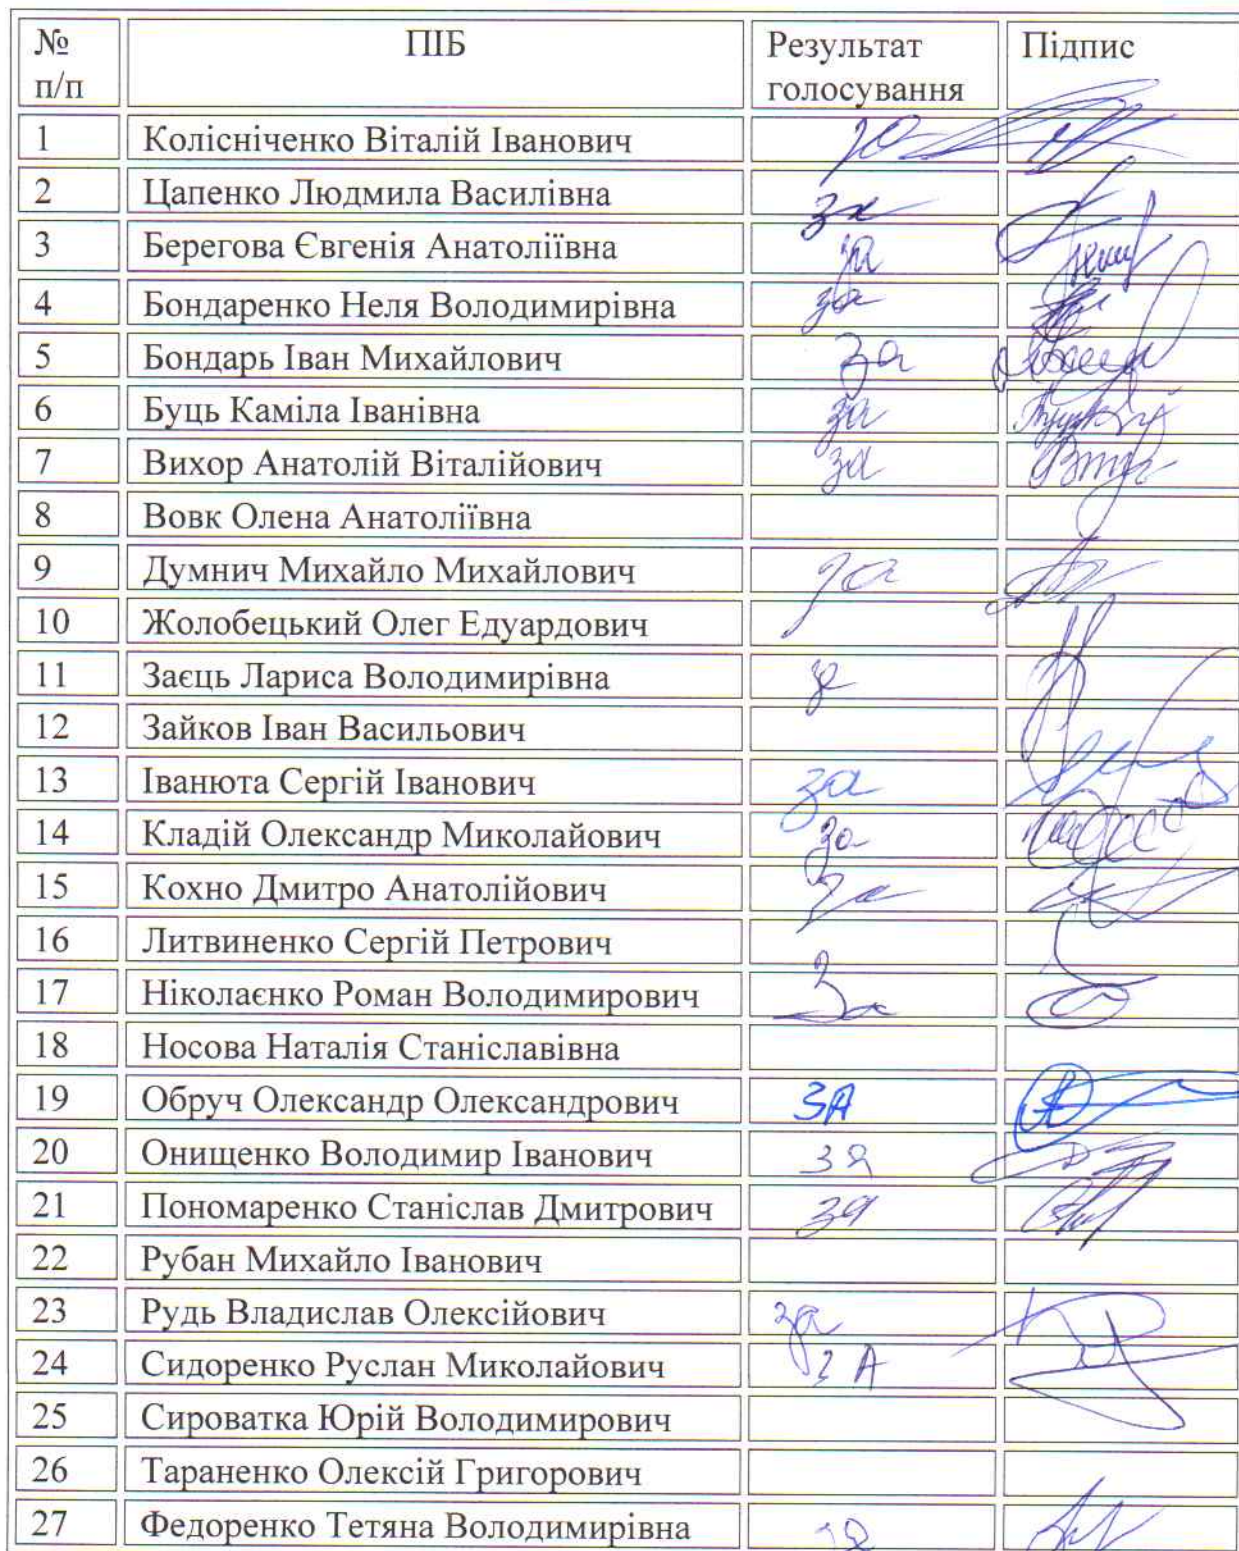 № п/п ПІБ Результат голосування Підпис
1 Колісніченко Віталій Іванович за
2 Цапенко Людмила Василівна за
3 Берегова Євгенія Анатоліївна за
4 Бондаренко Неля Володимирівна за
5 Бондарь Іван Михайлович за
6 Буць Каміла Іванівна за
7 Вихор Анатолій Віталійович за
8 Вовк Олена Анатоліївна
9 Думнич Михайло Михайлович за
10 Жолобецький Олег Едуардович
11 Заєць Лариса Володимирівна за
12 Зайков Іван Васильович
13 Іванюта Сергій Іванович за
14 Кладій Олександр Миколайович за
15 Кохно Дмитро Анатолійович за
16 Литвиненко Сергій Петрович
17 Ніколаєнко Роман Володимирович За
18 Носова Наталія Станіславівна
19 Обруч Олександр Олександрович ЗА
20 Онищенко Володимир Іванович за
21 Пономаренко Станіслав Дмитрович за
22 Рубан Михайло Іванович
23 Рудь Владислав Олексійович за
24 Сидоренко Руслан Миколайович ЗА
25 Сироватка Юрій Володимирович
26 Тараненко Олексій Григорович
27 Федоренко Тетяна Володимирівна за